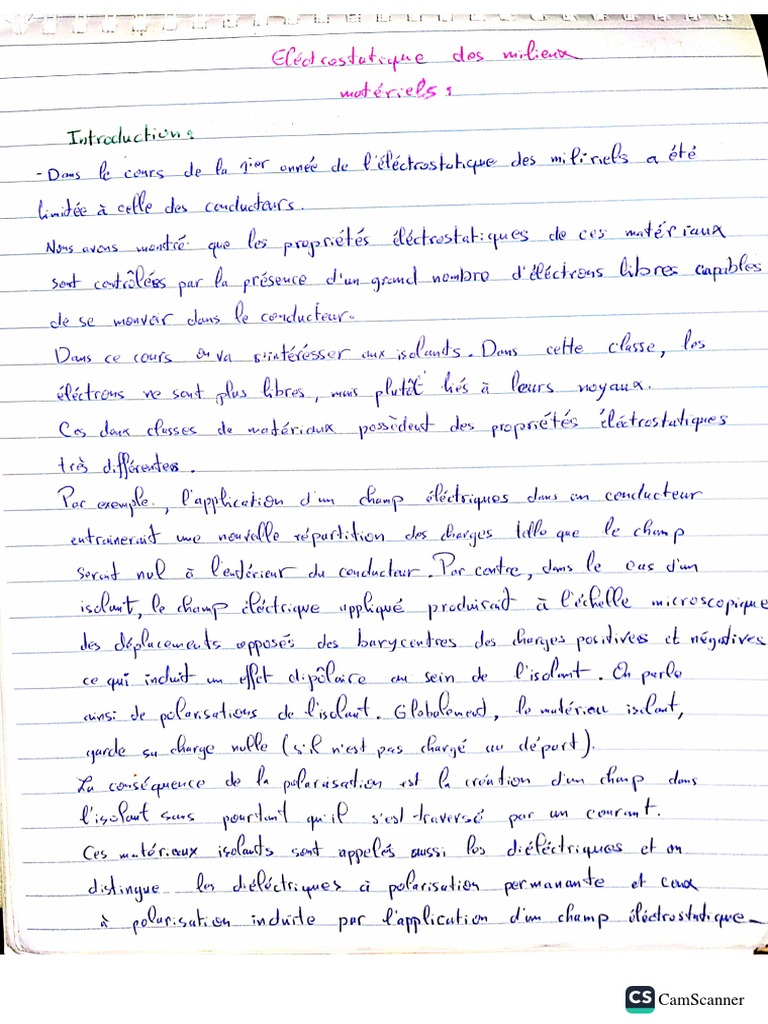 Eléctrostatique des milieux
matériels :
Introduction :
- Dans le cours de la 1ier année de l'éléctrostatique des milieux a été
limitée à celle des conducteurs.
Nous avons montré que les propriétés éléctrostatiques de ces matériaux
sont contrôlées par la présence d'un grand nombre d'éléctrons libres capables
de se mouvoir dans le conducteur.
Dans ce cours on va s'intérésser aux isolants. Dans cette classe, les
éléctrons ne sont plus libres, mais plutôt liés à leurs noyaux.
Ces deux classes de matériaux possèdent des propriétés éléctrostatiques
très différentes.
Par exemple, l'application d'un champ éléctriques dans un conducteur
entrainerait une nouvelle répartition des charges telle que le champ
serait nul à l'intérieur du conducteur. Par contre, dans le cas d'un
isolant, le champ éléctrique appliqué produirait à l'échelle microscopique
des déplacements opposés des barycentres des charges positives et négatives
ce qui induit un effet dipôlaire au sein de l'isolant. On parle
ainsi de polarisations de l'isolant. Globalement, le matériau isolant,
garde sa charge nulle (s'il n'est pas chargé au départ).
La conséquence de la polarisation est la création d'un champ dans
l'isolant sans pourtant qu'il s'est traversé par un courant.
Ces matériaux isolants sont appelés aussi les diéléctriques et on
distingue les diéléctriques à polarisation permanante et ceux
à polarisation induite par l'application d'un champ éléctrostatique-
CS CamScanner